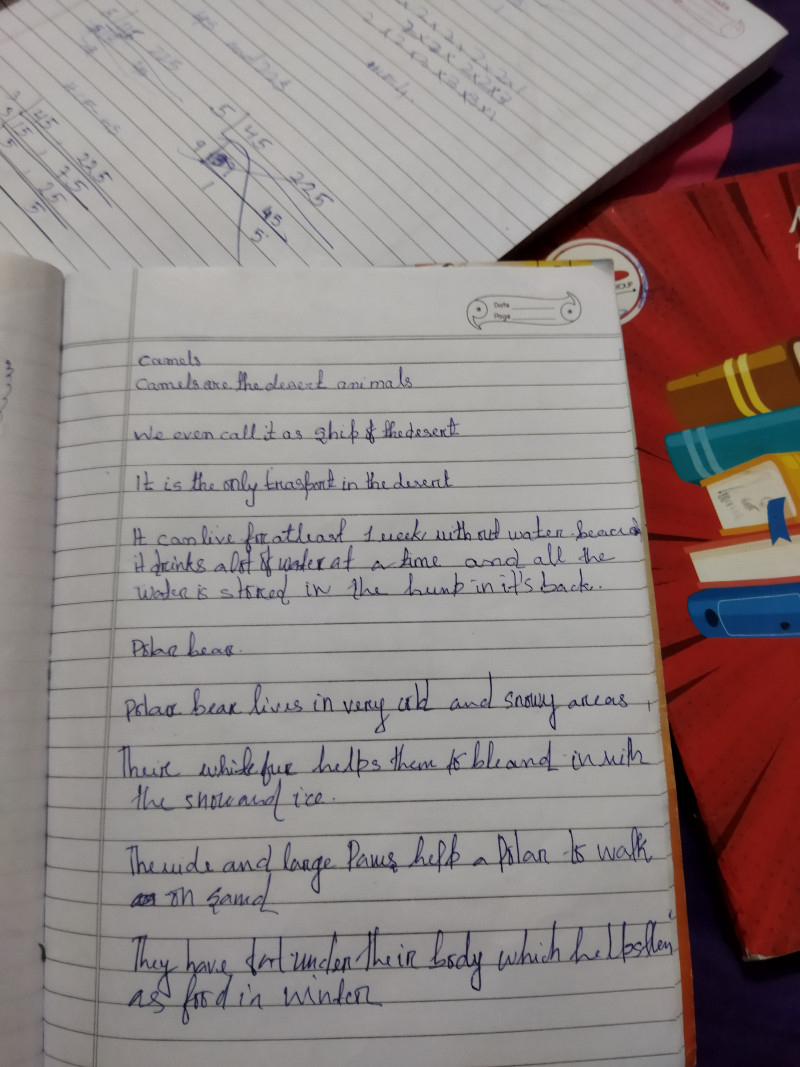 5 45 225
45
5
3 45, 225
5 15, 75
5, 25
5
Date
Page
Camels
Camels are the desert animals
We even call it as ship of the desert
It is the only trasport in the desert
It can live for atleast 1 week without water
it drinks a lot of water at a time and all the
water is stored in the hump in it's back.
Polar bear.
Polar bear lives in very cold and snowy areas
Their white fur helps them to bleand in with
the snow and ice.
The wide and large Paws help a Polar to walk
on sand
They have fat under their body which helps them
as food in winter